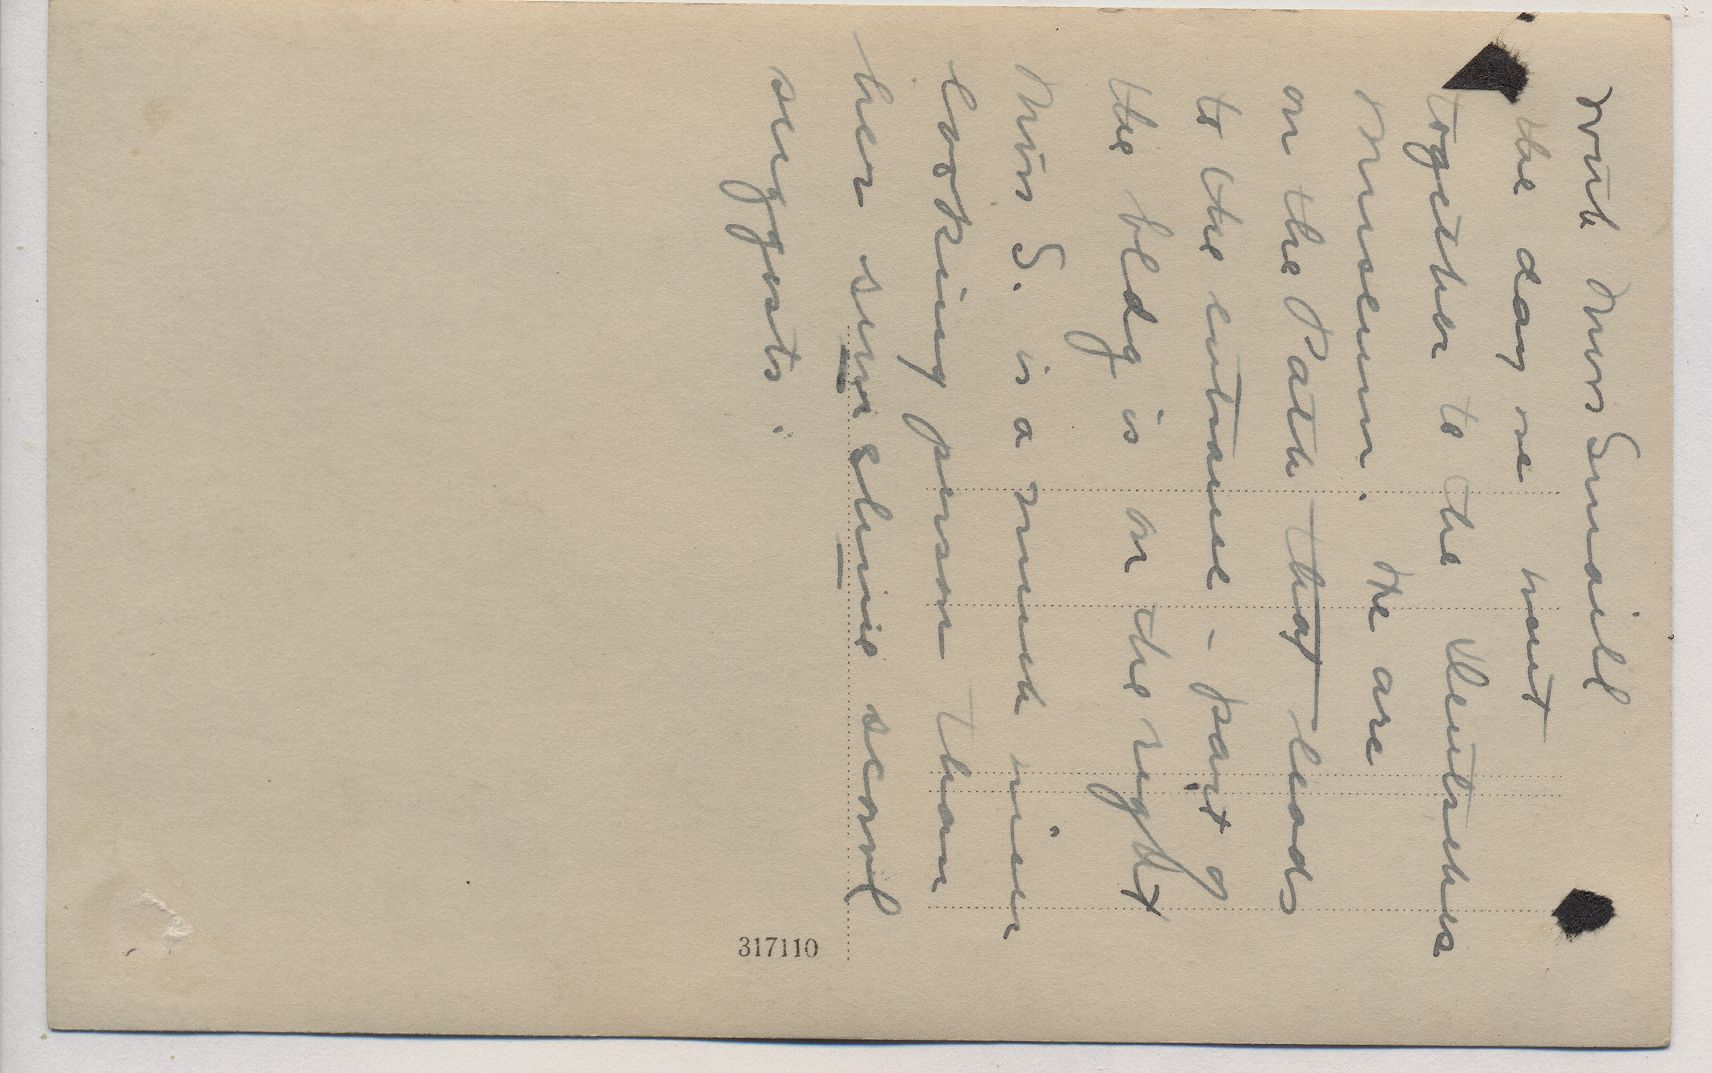 with Miss Smaill
the day we went
together to the Deutsches
Museum. We are
on the Path that leads
to the entrance – part of
the bldg is on the right
Miss S. is a much nicer
looking person than
her sun clinic scowl
suggests.
317110